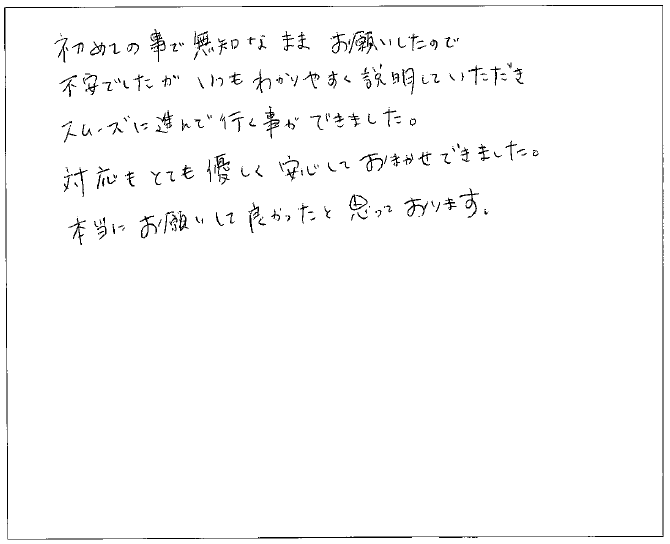 初めての事で無知なまま お願いしたので
不安でしたが いつもわかりやすく説明していただき
スムーズに進んで行く事ができました。
対応もとても優しく 安心しておまかせできました。
本当にお願いして良かったと思っております。